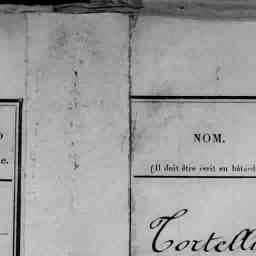 NOM.
e.
(Il doit être écrit en bâtard
Tortelli